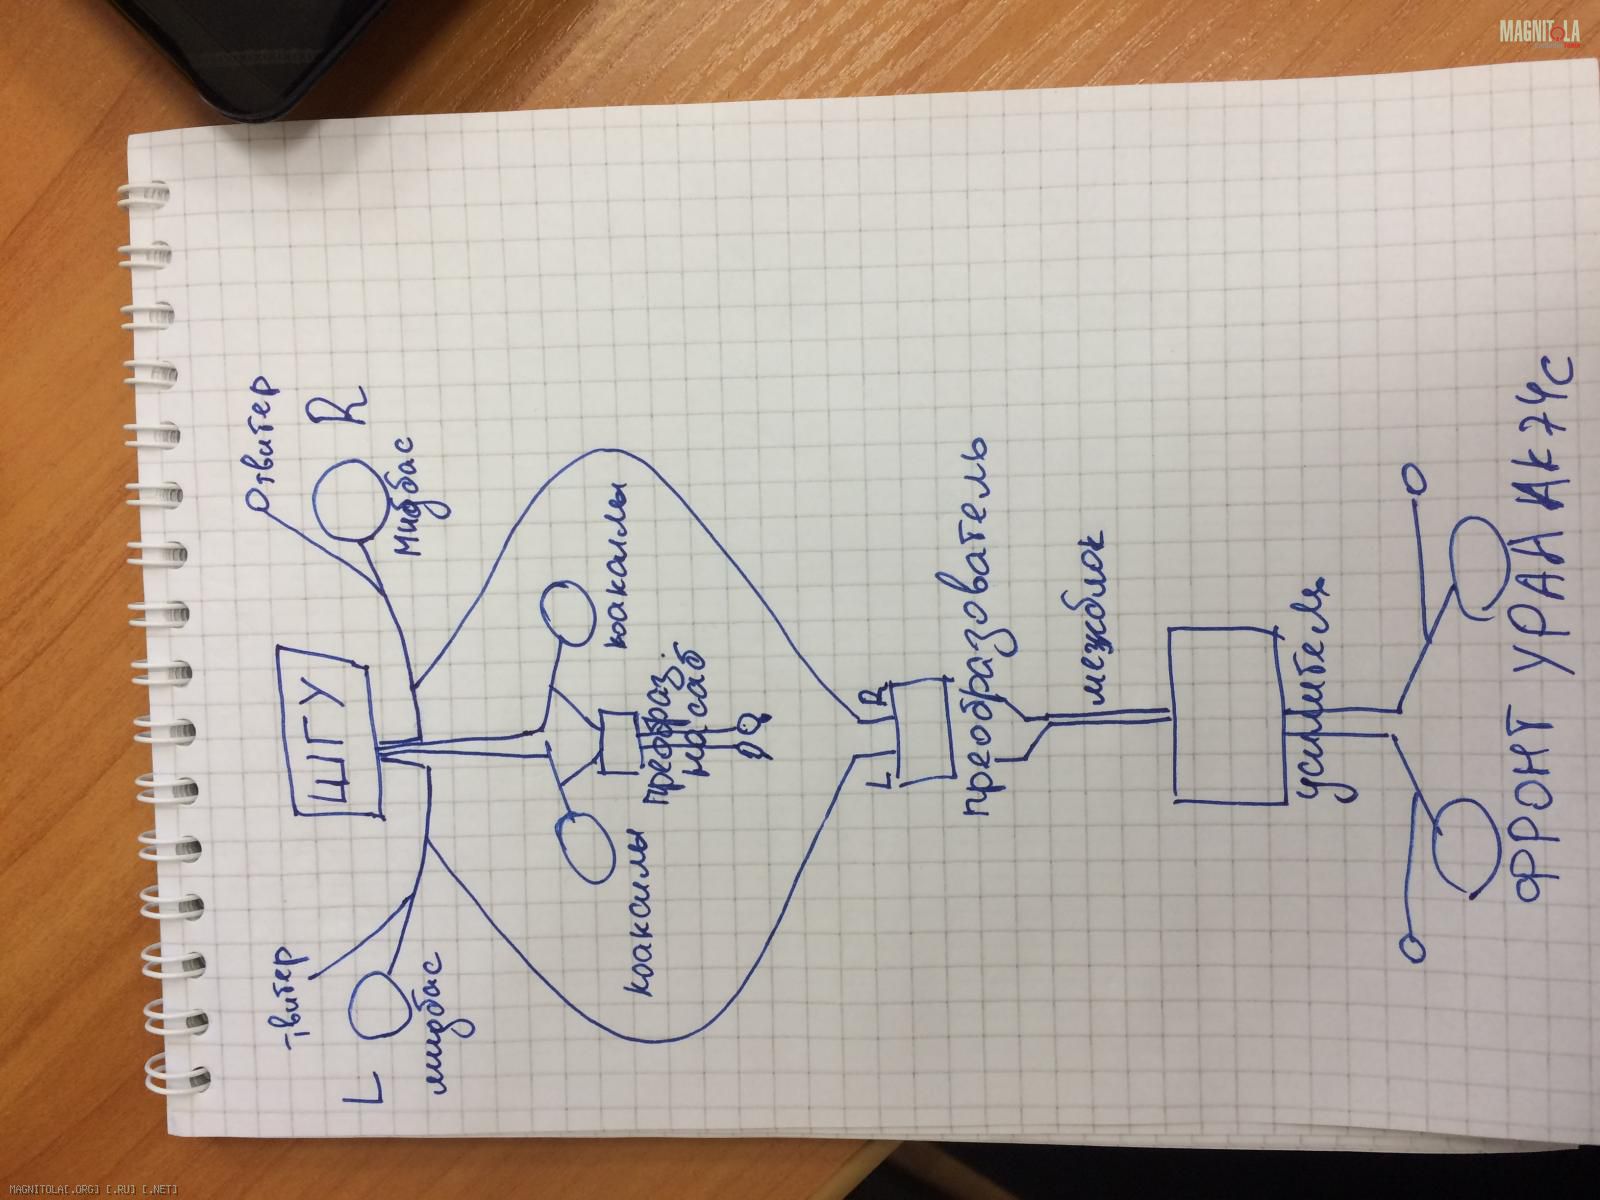 ШГУ
твитер
R
мидбас
твитер
L
мидбас
коаксилы
коаксилы
преобраз.
на саб
L R
преобразователь
межблок
усилитель
ФРОНТ УРАЛ АК74С
MAGNITOLA
MAGNITOLA[.ORG] [.RU] [.NET]